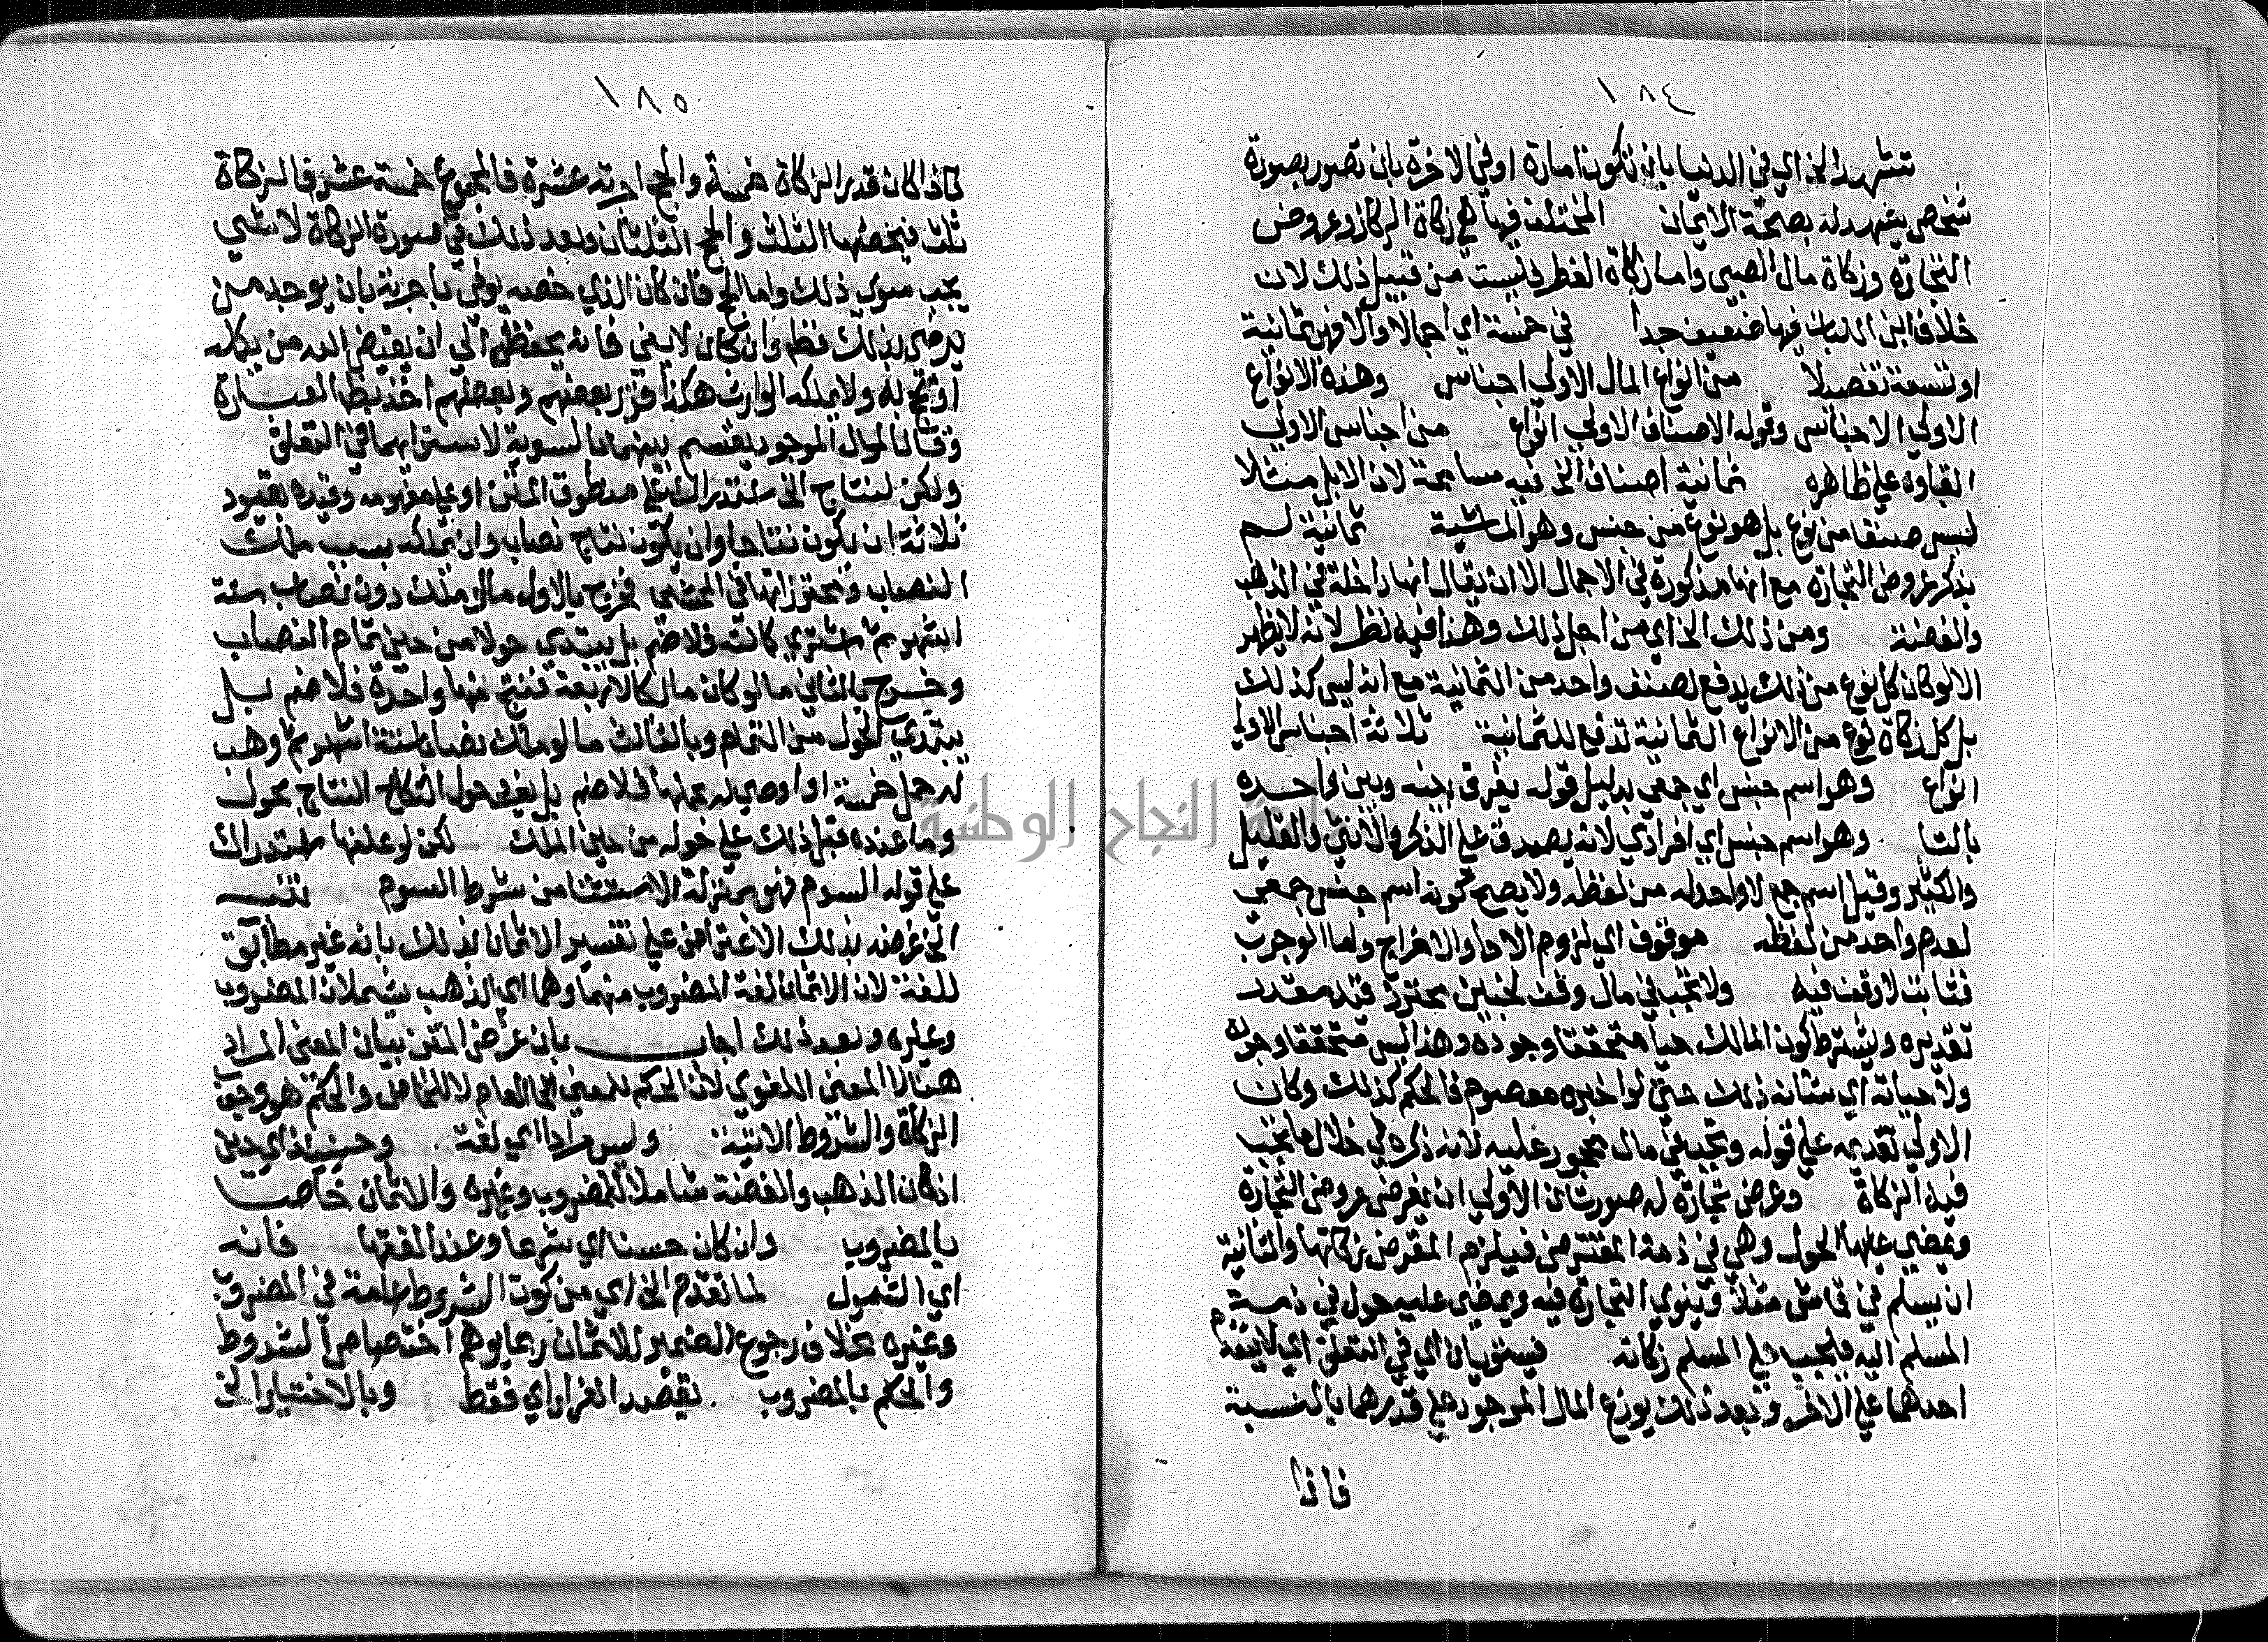 ١٨٤
تشهد الخ اي في الدنيا بان تكون امارة او في الاخرة بان تصور بصورة
شخص يشهد له بصحة الايمان المختلف فيها كزكاة الركاز وعروض
التجارة وزكاة مال الصبي واما زكاة الفطر فليست من قبيل ذلك لان
خلاف ابن اللبان فيها ضعيف جدا في خمسة اي اجمالا والا فهي ثمانية
او تسعة تفصيلا من انواع المال الاولي اجناس وهذه الانواع
الاولي الاجناس وقوله الاصناف الاولي انواع من اجناس الاولي
ابقاوه علي ظاهره ثمانية اصناف الخ فيه مسامحة لان الابل مثلا
ليس صنفا من نوع بل هو نوع من جنس وهو الماشية ثمانية لم
يذكر عروض التجارة مع انها مذكورة في الاجمال الا ان يقال انها داخلة في الذهب
والفضة ومن ذلك الخ اي من اجل ذلك وهذا فيه نظر لانه لا يظهر
الا لو كان كل نوع من ذلك يدفع لصنف واحد من الثمانية مع انه ليس كذلك
بل كل زكاة نوع من الانواع الثمانية تدفع للثمانية ثلاثة اجناس الاولي
انواع وهو اسم جنس اي جمعي بدليل قوله يفرق بينه وبين واحده
بالتا وهو اسم جنس اي افرادي لانه يصدق علي الذكر والانثي والقليل
والكثير وقيل اسم جمع لا واحد له من لفظه ولا يصح كونه اسم جنس جمعي
لعدم واحد من لفظه موقوف اي لزوم الادا والاخراج واما الوجوب
فثابت لا وقف فيه ولا تجب في مال وقف لجنين محترز قيد مقدر
تقديره ويشترط كون المالك حيا متحققا وجوده وهذا ليس متحققا وجوده
ولا حياته اي شانه ذلك حتي لو اخبره معصوم فالحكم كذلك وكان
الاولي تقديمه علي قوله وتجب في مال محجور عليه لانه ذكره في خلال ما يجب
فيه الزكاة وعرض تجارة له صورتان الاولي ان يقرض عروض التجارة
ويمضي عليها الحول وهي في ذمة المقترض فيلزم المقرض زكاتها والثانية
ان يسلم في قماش مثلا وينوي التجارة فيه ويمضي عليه حول في ذمة
المسلم اليه فيجب علي المسلم زكاته فيستويان اي في التعلق اي لا يقدم
احدهما علي الاخر وبعد ذلك يوزع المال الموجود علي قدرهما بالنسبة
فاذا
١٨٥
فاذا كان قدر الزكاة خمسة والحج اجرته عشرة فالمجموع خمسة عشر فالزكاة
ثلث فيخصها الثلث والحج الثلثان وبعد ذلك في صورة الزكاة لا شي
يجب سوي ذلك واما الحج فان كان الذي خصه يوفي باجرته بان يوجد من
يرضي بذلك فظاهر وان كان لا يفي فانه يحفظ الي ان يقيض الله من يكمله
او يحج به ولا يملكه الوارث هكذا قرر بعضهم وبعضهم اخذ بظاهر العبارة
وقال المال الموجود يقسم بينهما بالسوية لاستوائهما في التعلق
ولكن لنتاج الخ استدراك علي منطوق المتن او علي مفهومه وقيده بقيود
ثلاثة ان يكون نتاجا وان يكون نتاج نصاب وان يملكه بسبب ملك
النصاب ومحترزاتها في المحشي فخرج بالاول ما لو ملك دون نصاب ستة
اشهر ثم اشتري كماله فلا ضم بل يبتدي حولا من حين تمام النصاب
وخرج بالثاني ما لو كان مالكا لاربعة فنتج منها واحدة فلا ضم بل
يبتدي الحول من التمام وبالثالث ما لو ملك نصابا ستة اشهر ثم وهب
له حمل خمسة او اوصي له بحملها فلا ضم بل يعقد حول النتاج بحول
وما عنده قبل ذلك علي حوله من حين الملك لكن لو علفها استدراك
علي قوله السوم فهو بمنزلة الاستثنا من شرط السوم تنبيه
الخ غرضه بذلك الاعتراض علي تفسير الاثمان بذلك بانه غير مطابق
للغة لان الاثمان لغة المضروب منهما وهما اي الذهب يشملان المضروب
وغيره وبعد ذلك اجاب بان غرض المتن بيان المعني المراد
هنا لا المعني اللغوي لان الحكم للمعني العام لا للخاص والحكم هو وجوب
الزكاة والشروط الاتية وليس مرادا اي لغة وحينئذ اي حين
اذ كان الذهب والفضة شاملا للمضروب وغيره والاثمان خاصة
بالمضروب وان كان حسنا اي شرعا وعند الفقها فانه
اي الشمول لما تقدم الخ اي من كون الشروط عامة في المضروب
وغيره بخلاف رجوع الضمير للاثمان ربما يوهم اختصاص الشروط
والحكم بالمضروب بقصد الفرار اي فقط وبالاختيار الخ
جامعة النجاح الوطنية